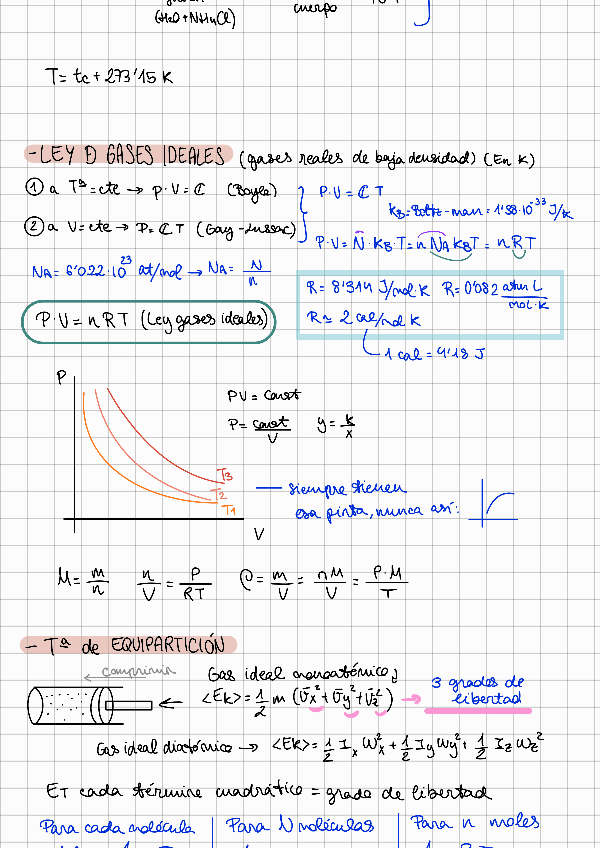 (H2O+NH4Cl)
cuerpo
T = tc + 273'15 K
- LEY D GASES IDEALES (gases reales de baja densidad) (En K)
① a Tª = cte → p·V = ₵ (Boyle)
② a V = cte → P = ₵ T (Gay-Lussac)
P·V = ₵ T
KB = Boltz-man = 1'38·10^-33 J/K
P·V = N·KB·T = n NA KB T = n R T
NA = 6'022·10^23 at/mol → NA = N/n
P·V = n R T (Ley gases ideales)
R = 8'314 J/mol·K R = 0'082 atm L/mol·K
R ≃ 2 cal/mol K
1 cal = 4'18 J
P
PV = const
P = const/V y = k/x
T3
T2
T1
V
siempre tienen
esa pinta, nunca así:
M = m/n n/V = P/RT ρ = m/V = nM/V = P·M/T
- Tª de EQUIPARTICIÓN
comprimir
Gas ideal monoatómico;
<Ek> = 1/2 m (v̄x² + v̄y² + v̄z²) → 3 grados de
libertad
Gas ideal diatómico → <Ek> = 1/2 Ix Wx² + 1/2 Iy Wy² + 1/2 Iz Wz²
ET cada término cuadrático = grado de libertad
Para cada molécula | Para N moléculas | Para n moles